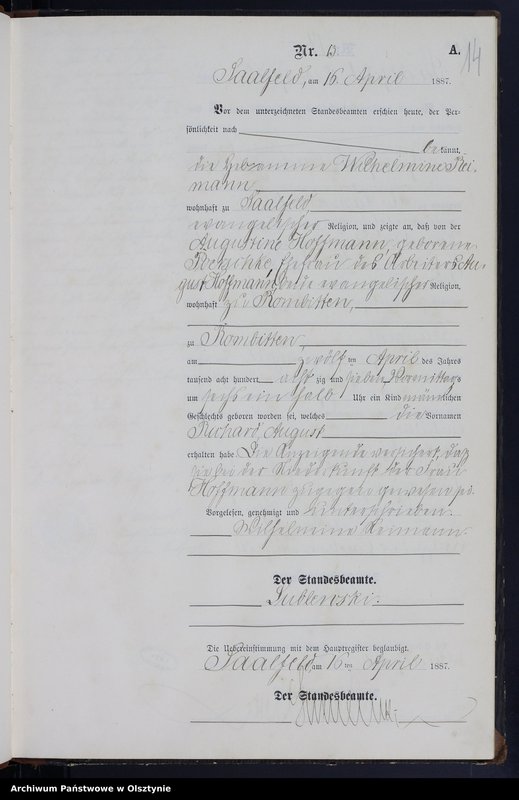 14
Nr. 13. A.
Saalfeld, am 16. April 1887.
Vor dem unterzeichneten Standesbeamten erschien heute, der Per-
sönlichkeit nach
be kannt,
die Hebamme Wilhelmine Rei-
mann,
wohnhaft zu Saalfeld,
evangelischer Religion, und zeigte an, daß von der
Augustine Hoffmann, geborene
Poetschke, Ehefrau des Arbeiters Au-
gust Hoffmann, beide evangelischer Religion,
wohnhaft zu Rombitten,
zu Rombitten,
am zwölf ten April des Jahres
tausend acht hundert acht zig und sieben Vormittags
um sechs ein halb Uhr ein Kind männlichen
Geschlechts geboren worden sei, welches die Vornamen
Richard August
erhalten habe. Die Anzeigende versichert, daß
sie bei der Niederkunft der Frau
Hoffmann zugegen gewesen sei.
Vorgelesen, genehmigt und unterschrieben.
Wilhelmine Reimann.
Der Standesbeamte.
Dublewski.
Die Uebereinstimmung mit dem Hauptregister beglaubigt.
Saalfeld am 16 ten April 1887.
Der Standesbeamte.
Archiwum Państwowe w Olsztynie